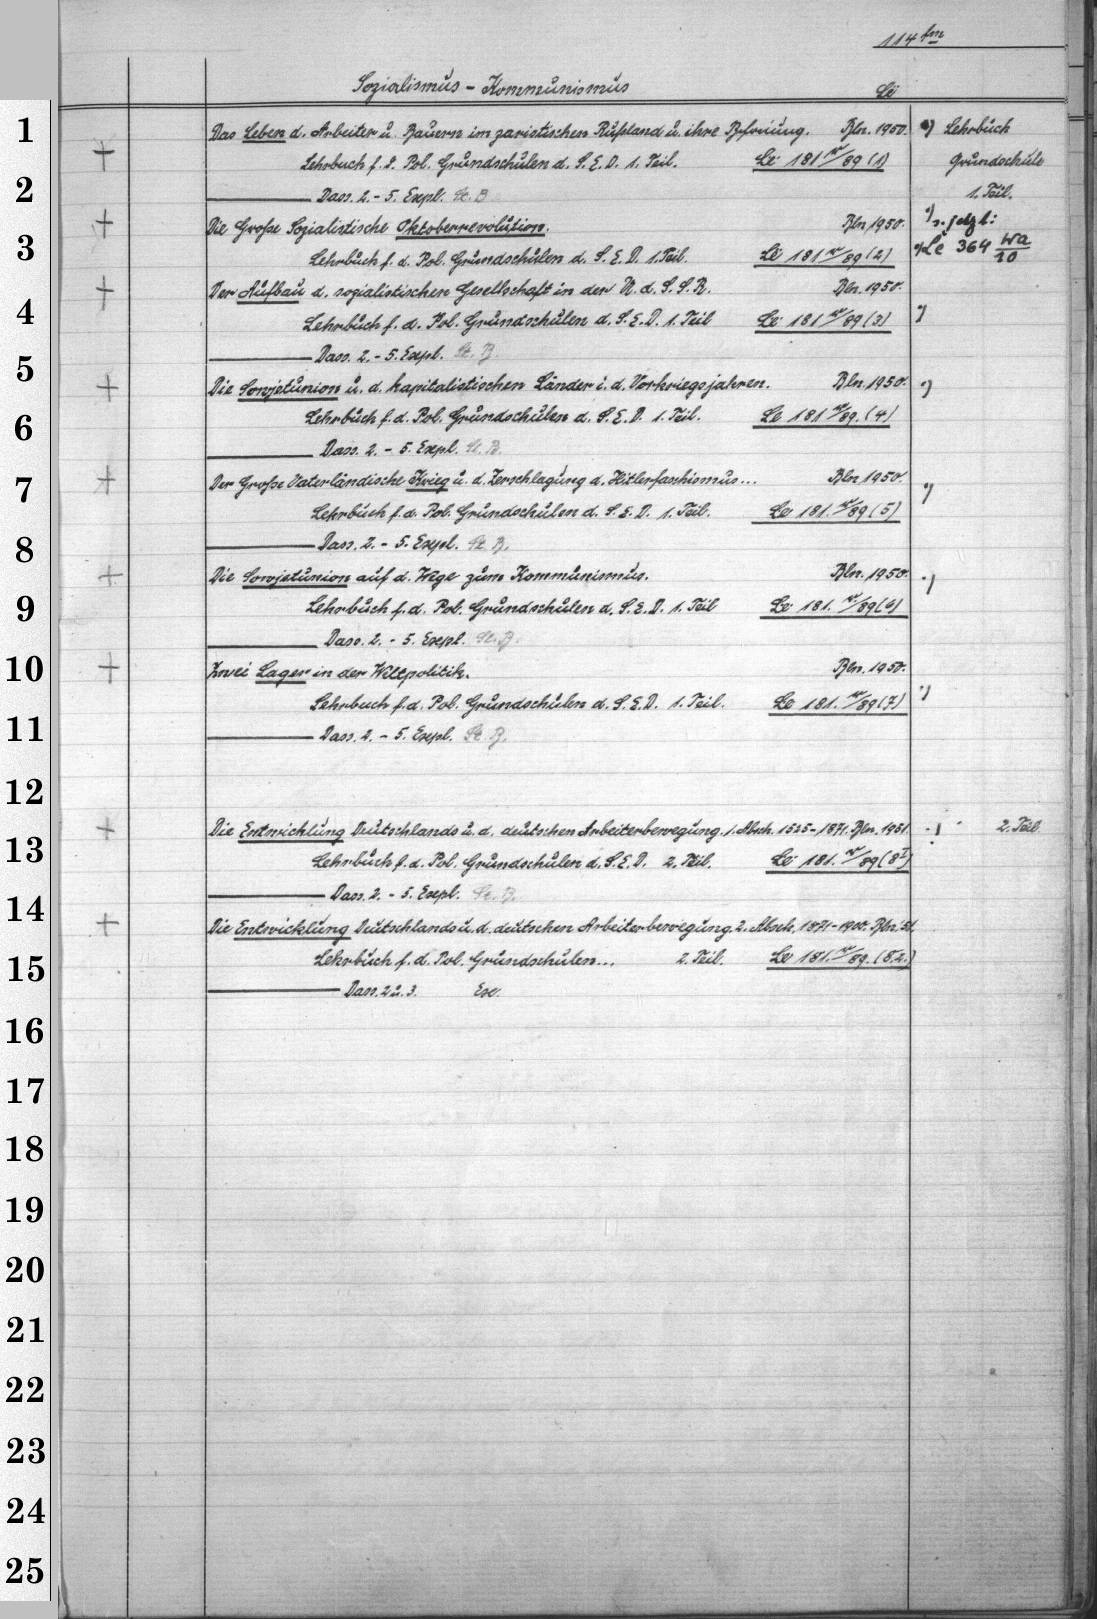 114
Sozialismus - Kommunismus Le
1 Das Leben d. Arbeiter u. Bauern im zaristischen Rußland u. ihre Befreiung. Bln. 1950. *) Lehrbuch
Lehrbuch f. d. Pol. Grundschulen d. S.E.D. 1. Teil. Le 181 /89 (1) Grundschule
2 Dass. 2.-5. Expl. St. B 1. Teil.
Die Große Sozialistische Oktoberrevolution. Bln. 1950. *) s. jetzt:
3 Lehrbuch f. d. Pol. Grundschulen d. S.E.D. 1. Teil. Le 181 /89 (2) *) Le 364 Wa/10
Der Aufbau d. sozialistischen Gesellschaft in der U.d.S.S.R. Bln. 1950.
4 Lehrbuch f. d. Pol. Grundschulen d. S.E.D. 1. Teil Le 181 /89 (3) *)
5 Dass. 2.-5. Expl. St. B.
Die Sowjetunion u. d. kapitalistischen Länder i. d. Vorkriegsjahren. Bln. 1950. *)
6 Lehrbuch f. d. Pol. Grundschulen d. S.E.D. 1. Teil. Le 181 /89. (4)
Dass. 2. - 5. Expl. St. B.
7 Der Große Vaterländische Krieg u. d. Zerschlagung d. Hitlerfaschismus... Bln. 1950. *)
Lehrbuch f. d. Pol. Grundschulen d. S.E.D. 1. Teil. Le 181. /89 (5)
8 Dass. 2. - 5. Expl. St. B.
Die Sowjetunion auf d. Wege zum Kommunismus. Bln. 1950. *)
9 Lehrbuch f. d. Pol. Grundschulen d. S.E.D. 1. Teil Le 181. /89 (6)
Dass. 2. - 5. Expl. St. B.
10 Zwei Lager in der Weltpolitik. Bln. 1950.
Lehrbuch f. d. Pol. Grundschulen d. S.E.D. 1. Teil. Le 181. /89 (7) *)
11 Dass. 2. - 5. Expl. St. B.
12
Die Entwicklung Deutschlands u. d. deutschen Arbeiterbewegung. 1. Absch. 1525-1871. Bln. 1951. 2. Teil
13 Lehrbuch f. d. Pol. Grundschulen d. S.E.D. 2. Teil. Le 181. /89 (8 I)
14 Dass. 2. - 5. Expl. St. B.
Die Entwicklung Deutschlands u. d. deutschen Arbeiterbewegung. 2. Absch. 1871-1900. Bln. 51.
15 Lehrbuch f. d. Pol. Grundschulen... 2. Teil. Le 181. /89. (8.2.)
Dass. 2 u. 3. Ex.
16
17
18
19
20
21
22
23
24
25